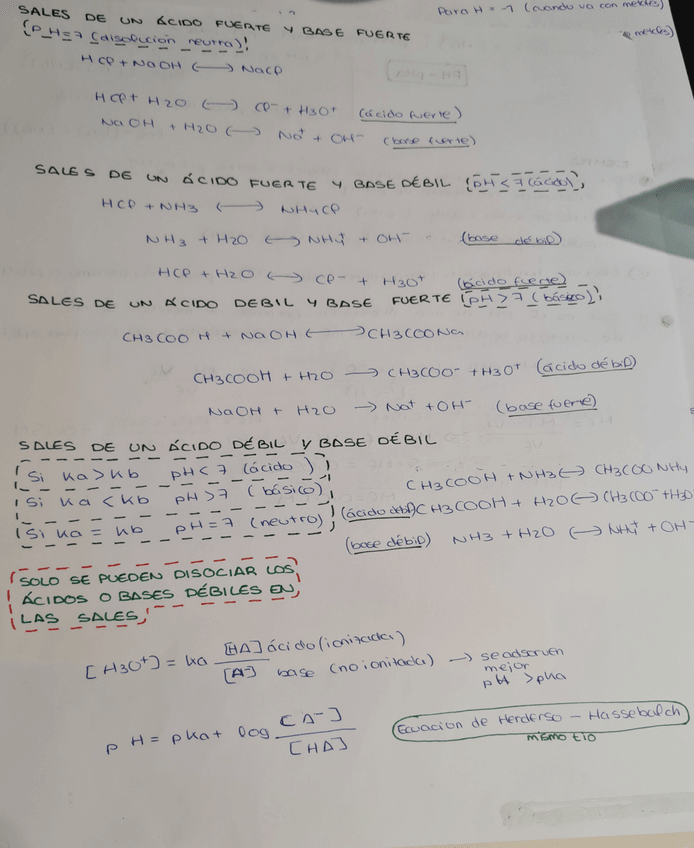 Para H = -1 (cuando va con metales)
SALES DE UN ÁCIDO FUERTE Y BASE FUERTE
metales)
(PH=7 (disolución neutra)!
HCl + NaOH ⟷ NaCl
HCl + H2O ⟷ Cl⁻ + H3O⁺ (ácido fuerte)
NaOH + H2O ⟷ Na⁺ + OH⁻ (base fuerte)
SALES DE UN ÁCIDO FUERTE Y BASE DÉBIL (pH < 7 (ácido))
HCl + NH3 ⟷ NH4Cl
NH3 + H2O ⟷ NH4⁺ + OH⁻ (base débil)
HCl + H2O ⟷ Cl⁻ + H3O⁺ (ácido fuerte)
SALES DE UN ÁCIDO DEBIL Y BASE FUERTE (pH > 7 (básico))
CH3COOH + NaOH ⟷ CH3COONa
CH3COOH + H2O ⟶ CH3COO⁻ + H3O⁺ (ácido débil)
NaOH + H2O → Na⁺ + OH⁻ (base fuerte)
SALES DE UN ÁCIDO DÉBIL Y BASE DÉBIL
Si ka > kb pH < 7 (ácido)
Si ka < kb pH > 7 (básico)
Si ka = kb pH = 7 (neutro)
CH3COOH + NH3 ⟷ CH3COONH4
(ácido débil) CH3COOH + H2O ⟷ CH3COO⁻ + H3O
(base débil) NH3 + H2O ⟷ NH4⁺ + OH⁻
SOLO SE PUEDEN DISOCIAR LOS
ÁCIDOS O BASES DÉBILES EN
LAS SALES
[H3O⁺] = ka [HA] ácido (ionizada) / [A⁻] base (no ionizada) → se adsorven
mejor
pH > pka
pH = pka + log [A⁻] / [HA]
Ecuacion de Herderso - Hassebalch
mismo tio